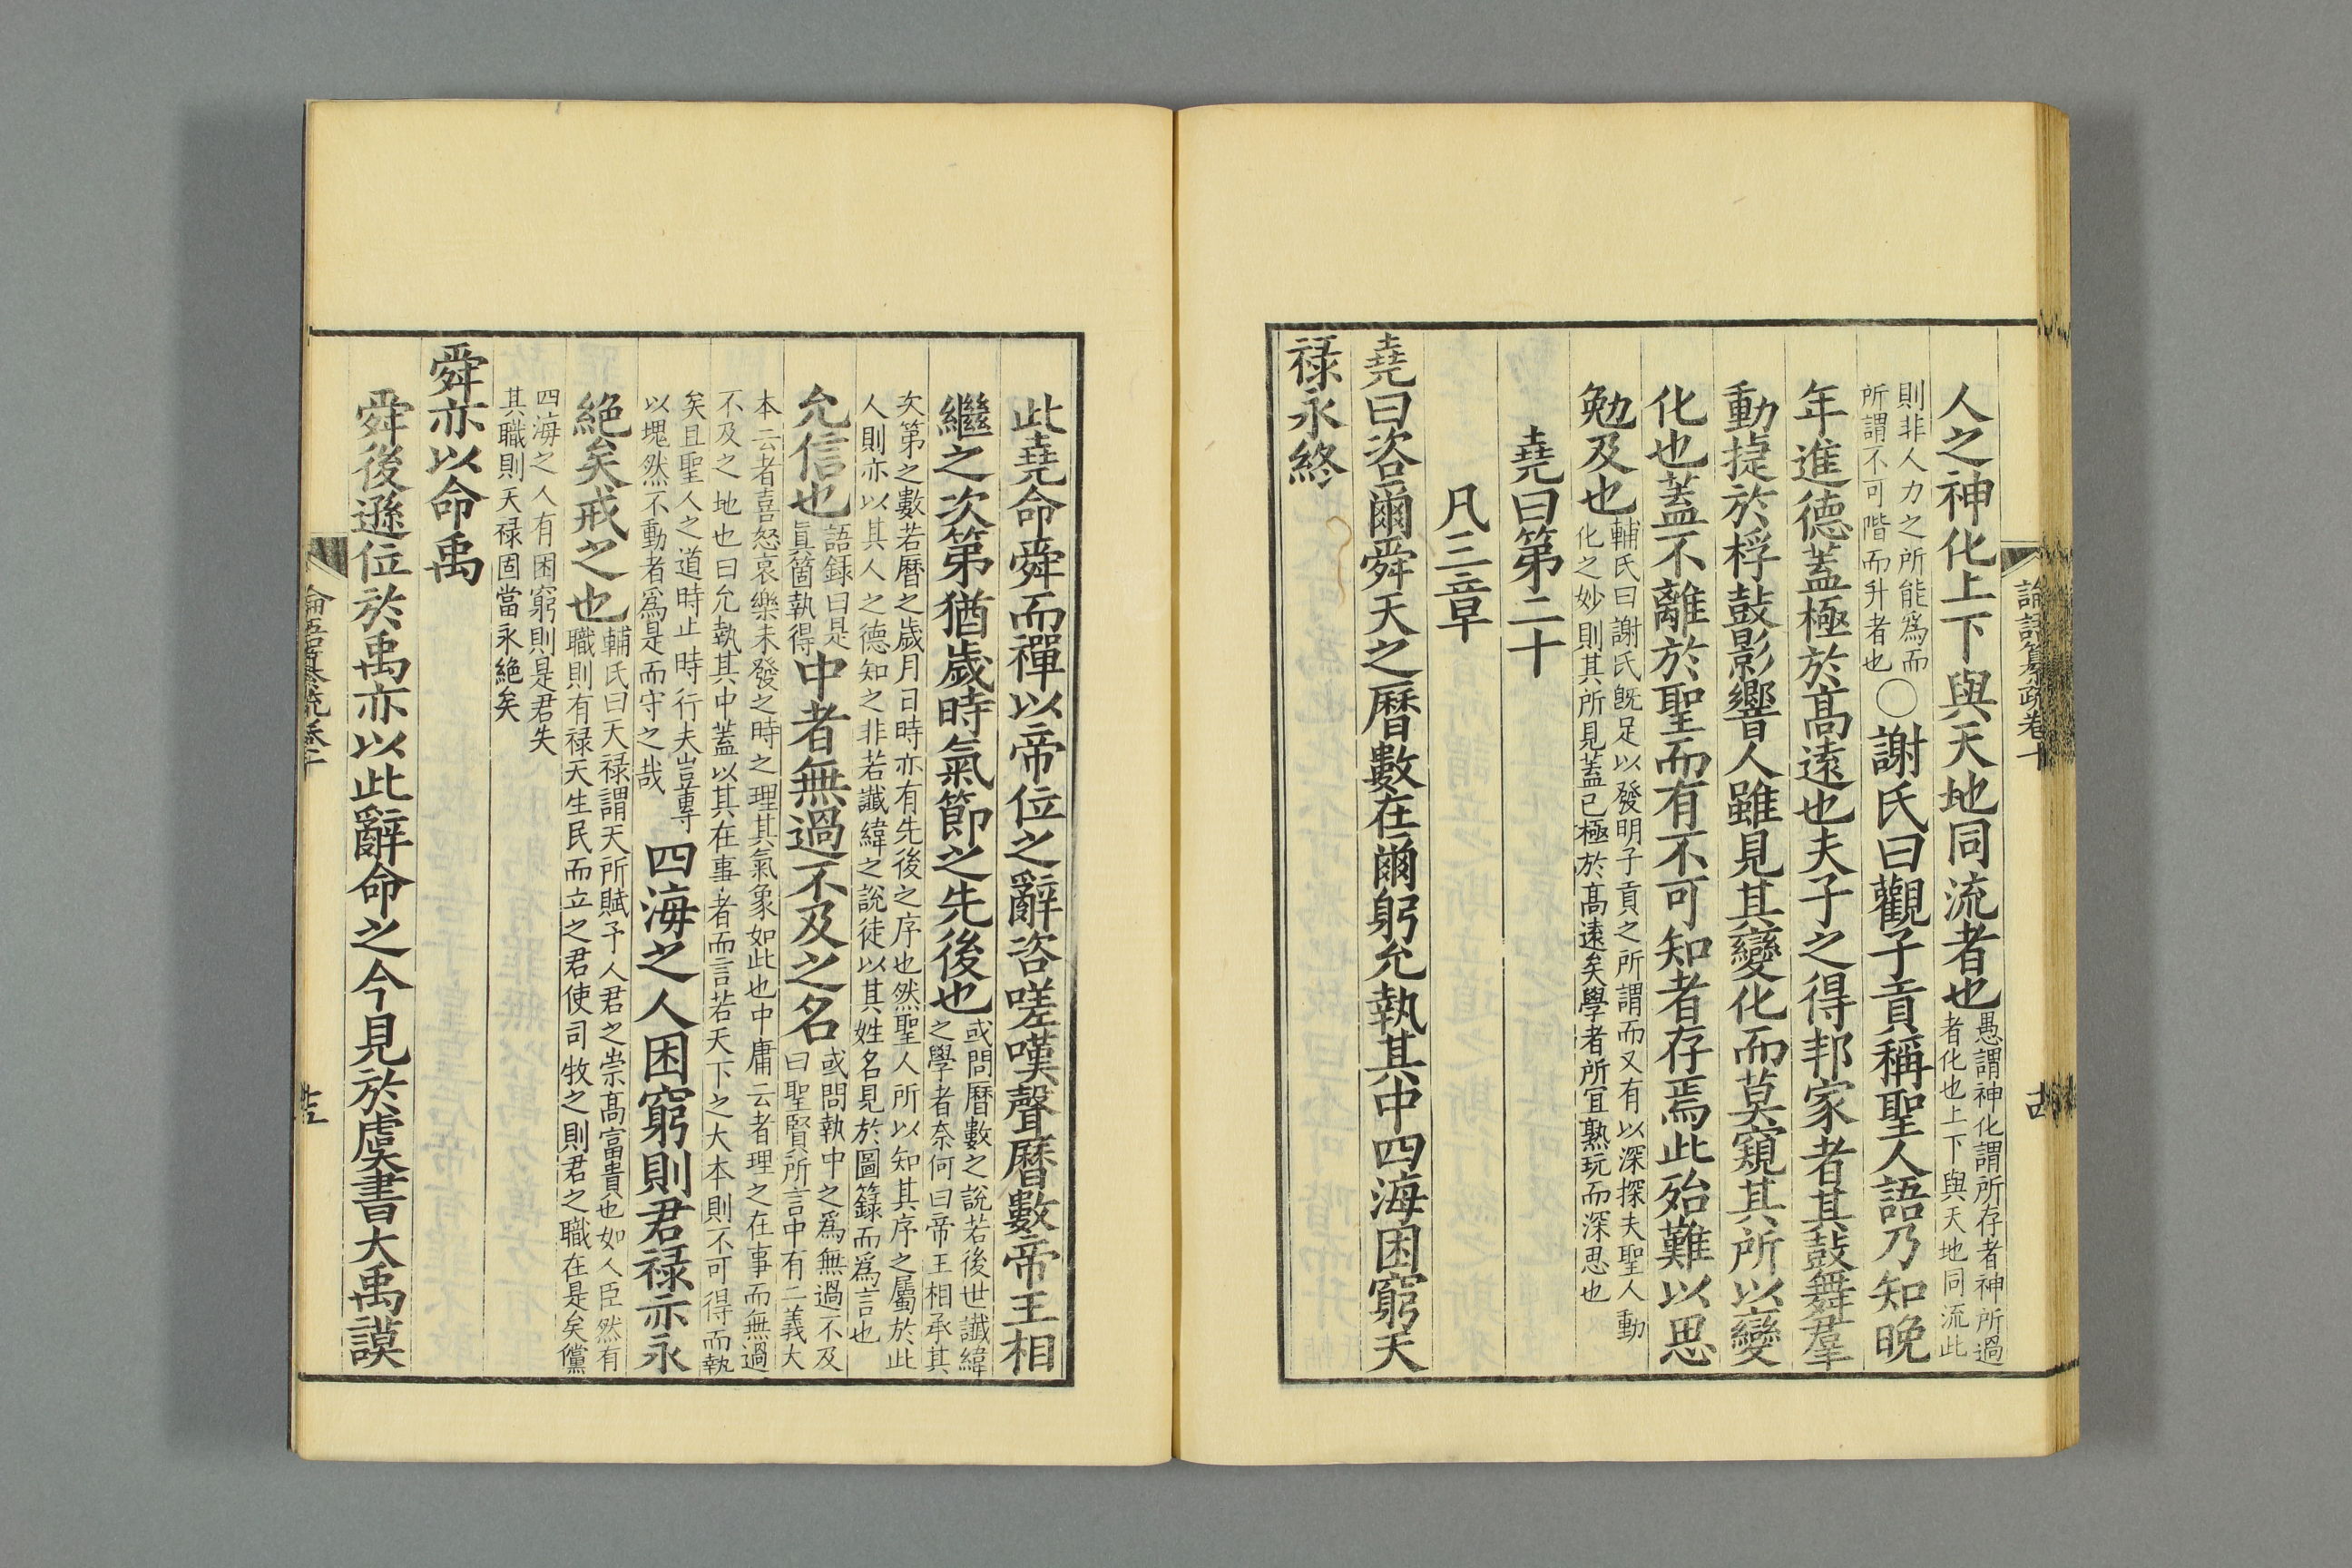 論語纂疏卷十
人之神化上下與天地同流者也愚謂神化謂所存者神所過者化也上下與天地同流此
則非人力之所能爲而所謂不可階而升者也〇謝氏曰觀子貢稱聖人語乃知晚
年進德蓋極於髙遠也夫子之得邦家者其鼓舞羣
動捷於桴鼓影響人雖見其變化而莫窺其所以變
化也蓋不離於聖而有不可知者存焉此殆難以思
勉及也輔氏曰謝氏旣足以發明子貢之所謂而又有以深探夫聖人動化之妙則其所見蓋已極於髙遠矣學者所冝熟玩而深思也
堯曰第二十
凡三章
堯曰咨爾舜天之曆數在爾躬允執其中四海困窮天
禄永終
此堯命舜而禪以帝位之辭咨嗟嘆聲曆數帝王相
繼之次第猶歲時氣節之先後也或問曆數之說若後世讖緯之學者奈何曰帝王相承其
次第之數若曆之歲月日時亦有先後之序也然聖人所以知其序之屬於此人則亦以其人之德知之非若讖緯之說徒以其姓名見於圖籙而爲言也
允信也語録曰是眞箇執得中者無過不及之名或問執中之爲無過不及曰聖賢所言中有二義大
本云者喜怒哀樂未發之時之理其氣象如此也中庸云者理之在事而無過不及之地也曰允執其中蓋以其在事者而言若天下之大本則不可得而執
矣且聖人之道時止時行夫豈專以塊然不動者爲是而守之哉四海之人困窮則君禄亦永
絕矣戒之也輔氏曰天禄謂天所賦予人君之崇髙富貴也如人臣然有職則有禄天生民而立之君使司牧之則君之職在是矣儻
四海之人有困窮則是君失其職則天禄固當永絕矣
舜亦以命禹
舜後遜位於禹亦以此辭命之今見於虞書大禹謨
論語纂疏卷十